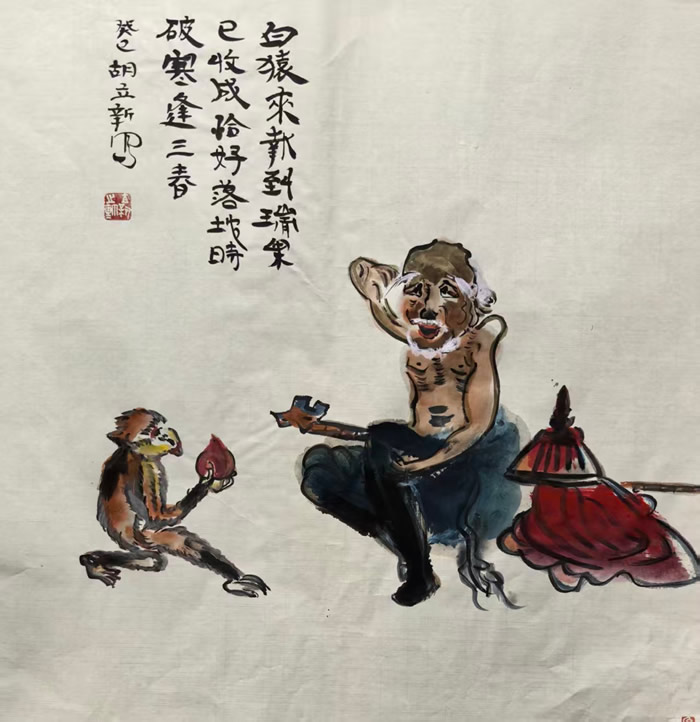 白猿來報到瑞果
已收成恰好落地時
破寒逢三春
癸巳胡立新写